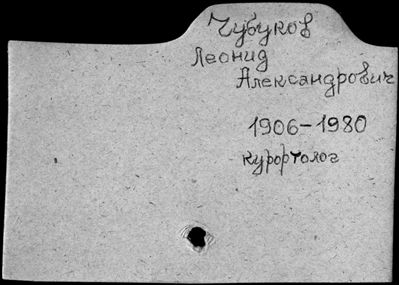 Чубуков
Леонид
Александрович
1906-1980
курортолог